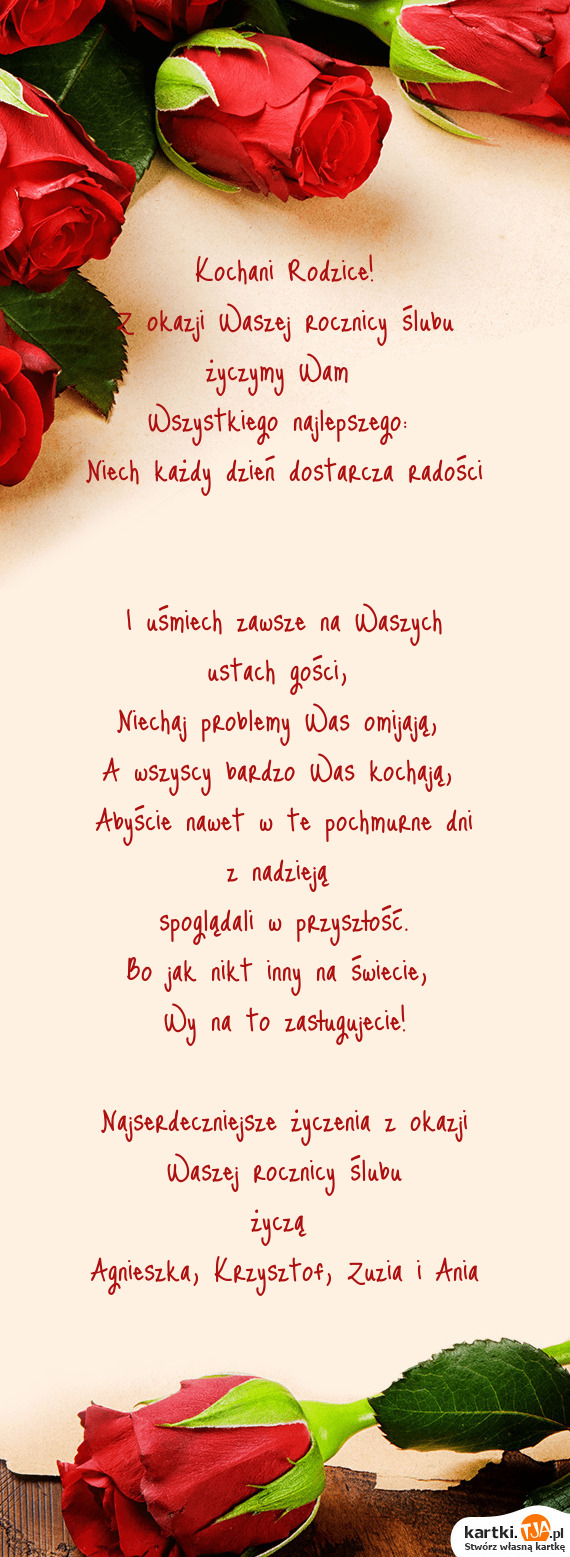 Kochani Rodzice!
Z okazji Waszej rocznicy ślubu
życzymy Wam
Wszystkiego najlepszego:
Niech każdy dzień dostarcza radości
I uśmiech zawsze na Waszych
ustach gości,
Niechaj problemy Was omijają,
A wszyscy bardzo Was kochają,
Abyście nawet w te pochmurne dni
z nadzieją
spoglądali w przyszłość.
Bo jak nikt inny na świecie,
Wy na to zasługujecie!
Najserdeczniejsze życzenia z okazji
Waszej rocznicy ślubu
życzą
Agnieszka, Krzysztof, Zuzia i Ania
kartki.TJA.pl
Stwórz własną kartkę